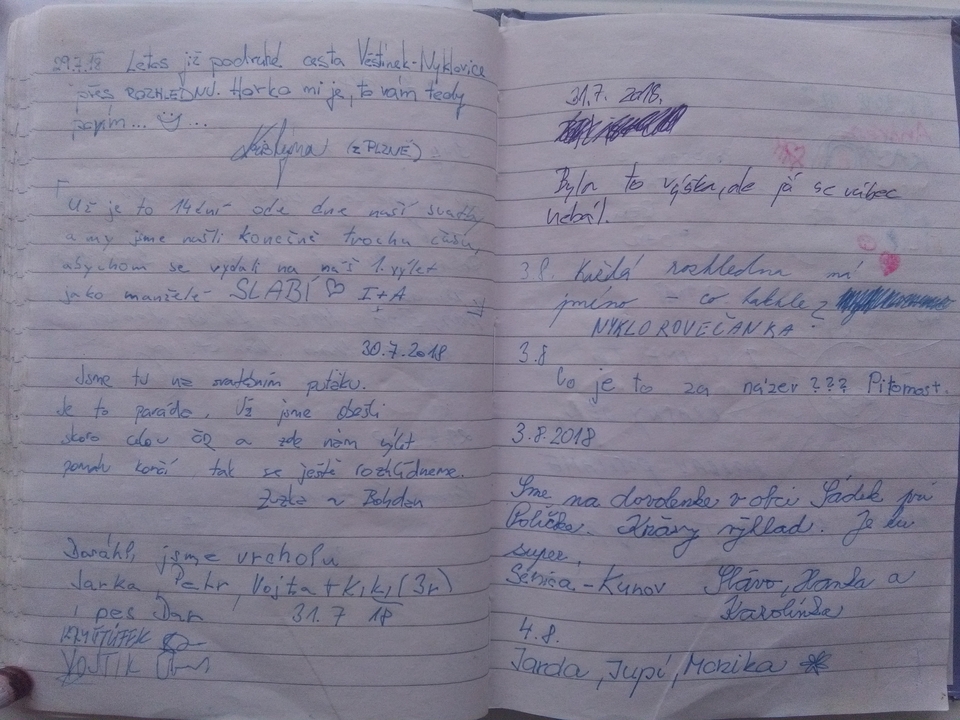 29.7.18 Letos již podruhé cesta Věstínek-Nyklovice
přes ROZHLEDNU. Horko mi je, to vám tedy
povím... ...
(z PLZNĚ)
Už je to 14 dní ode dne naší svatby
a my jsme našli konečně trochu času,
abychom se vydali na náš 1. výlet
jako manželé SLABÍ ♡ I+A
30.7.2018
Jsme tu na svatebním puťáku.
Je to paráda. Už jsme obešli
skoro celou ČR a zde nám výlet
pomalu končí tak se ještě rozhlídneme.
Zuzka ~ Bohdan
Dosáhli jsme vrcholu
Jarka, Petr, Vojta + Kiki (3r)
i pes Dar
31.7 18
VOJTIK
31.7. 2018.
Byla to výška, ale já se vůbec
nebál.
3.8. Každá rozhledna má
jméno - co takhle?
NYKLOROVEČANKA
3.8
Co je to za název ??? Pitomost.
3.8.2018
Sme na dovolenke v obci Sádek pri
Poličke. Krásny výhlad. Je tu
super.
Senica - Kunov Slávo, Hanka a
Karolínka
4.8.
Jarda, Jupí, Monika